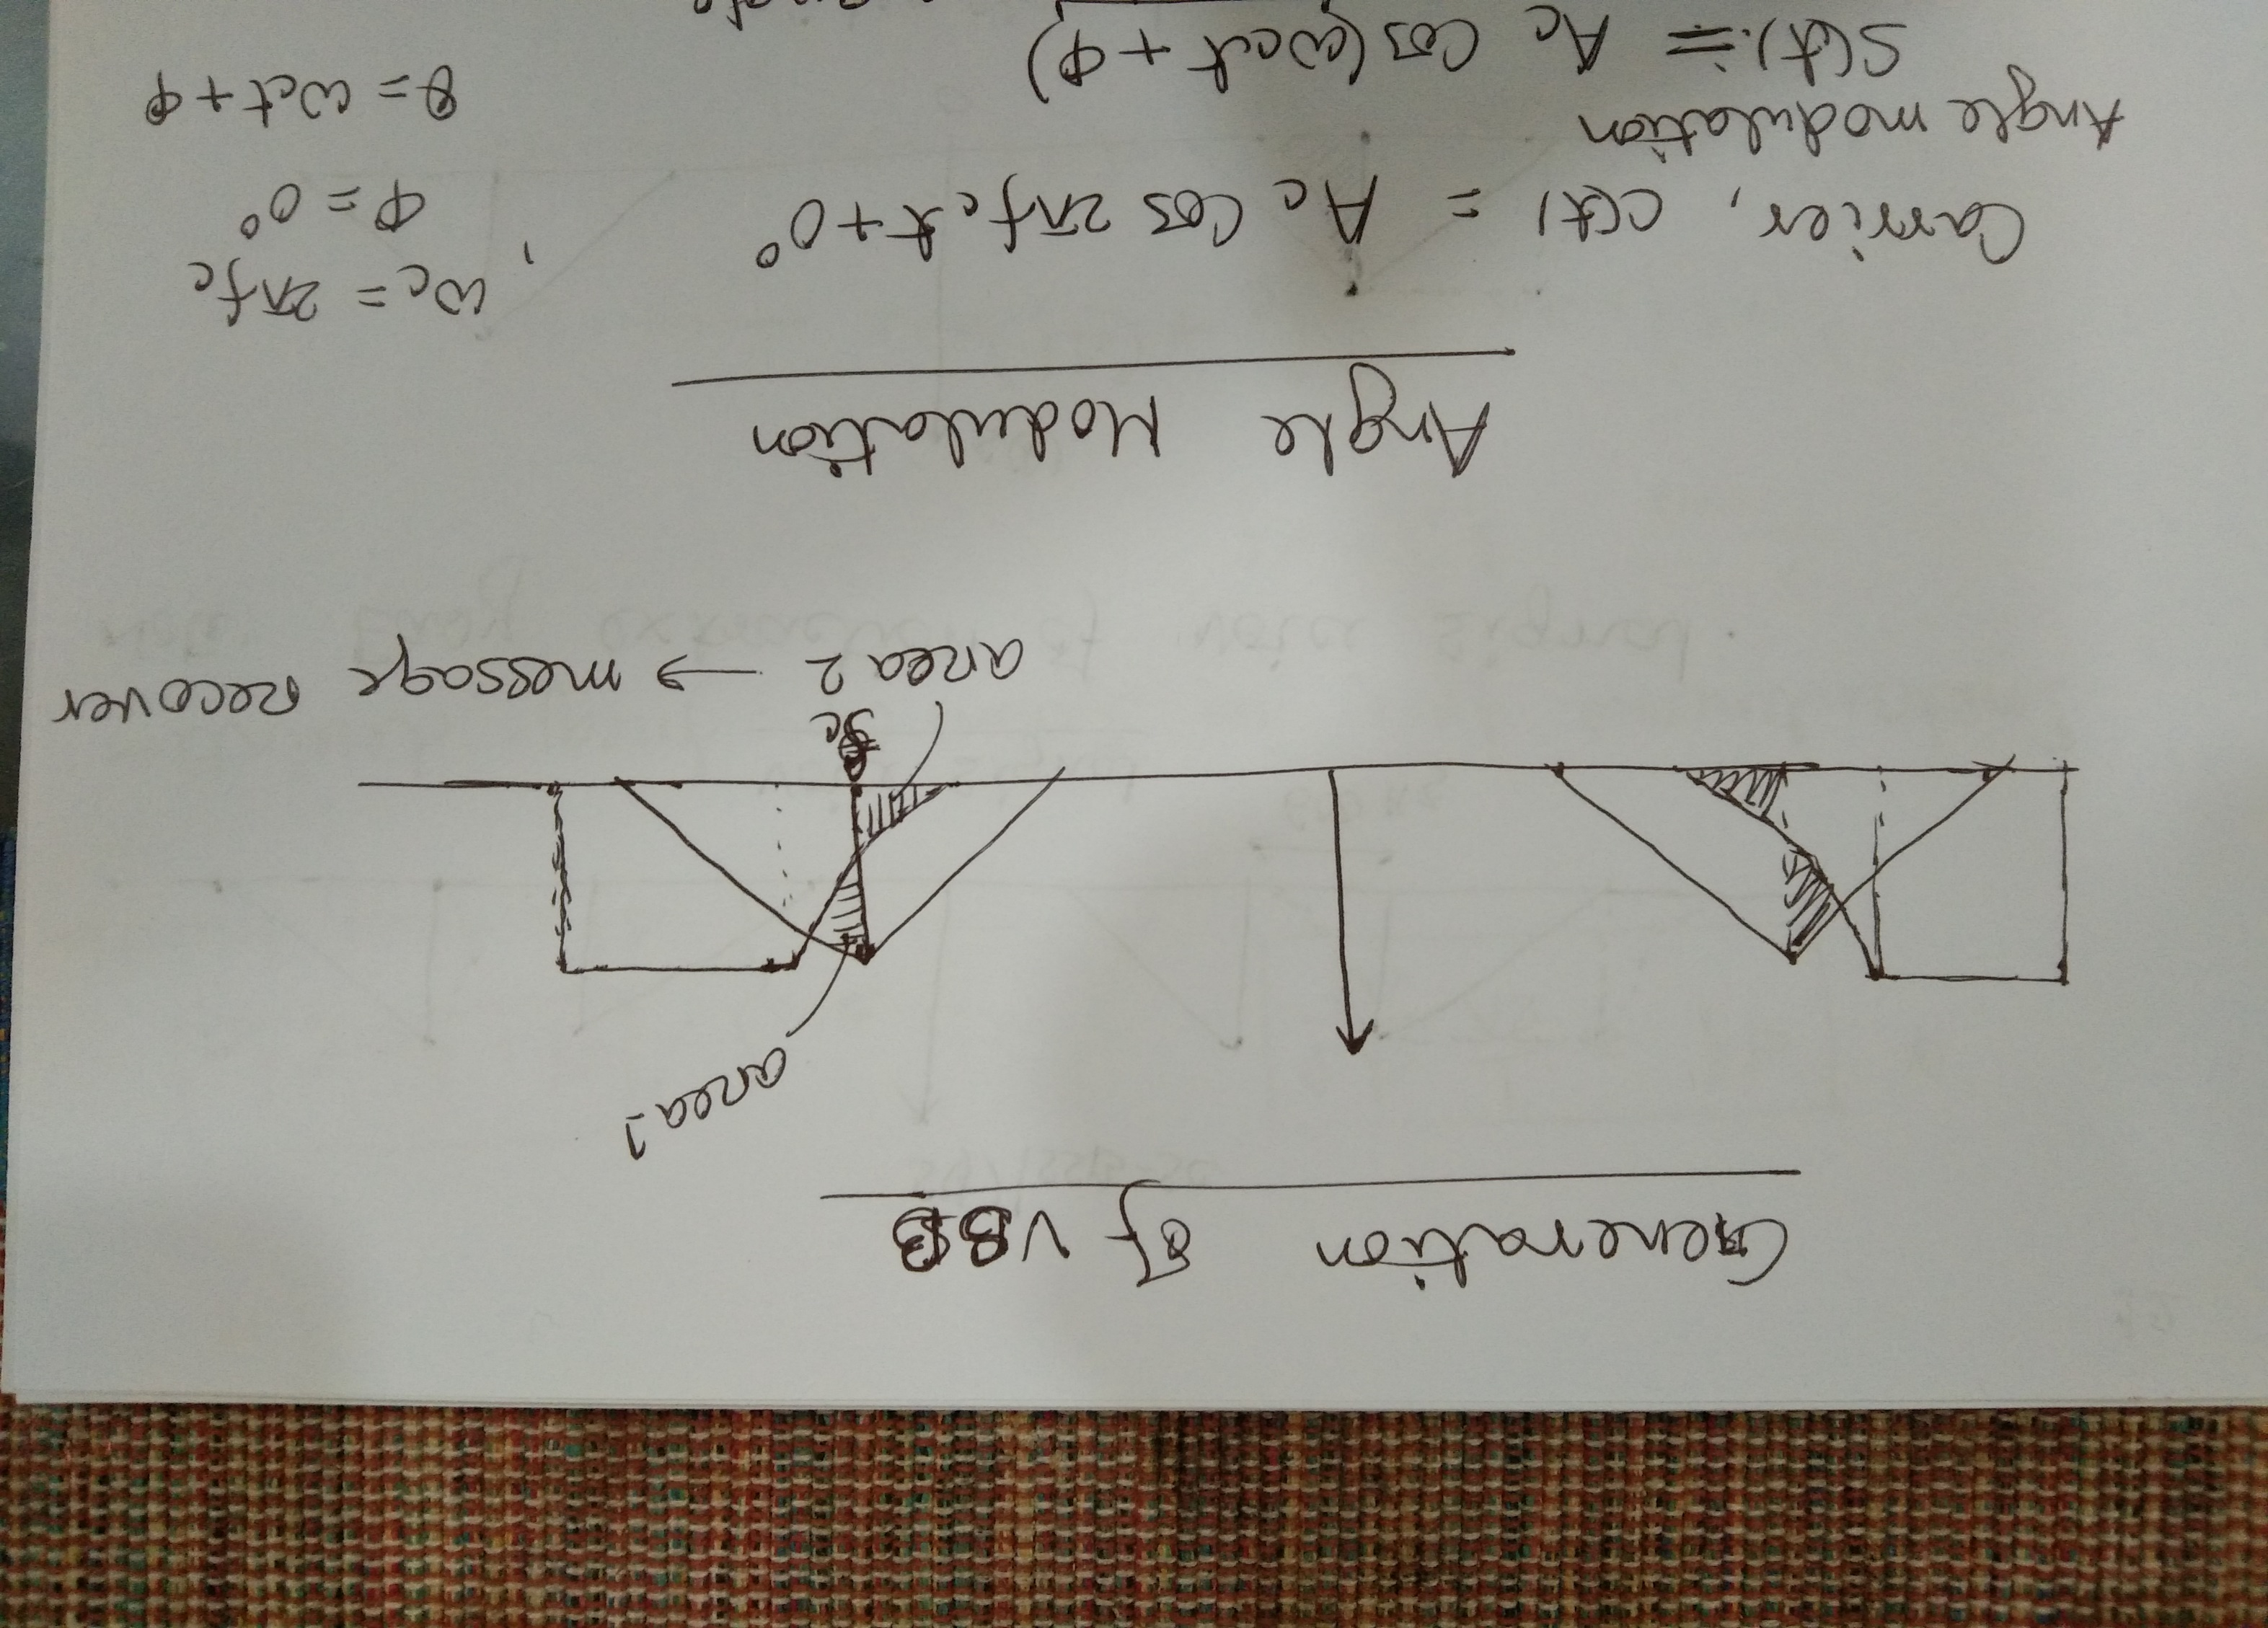 Generation of VSB
area 1
fc
area 2 → message recover
Angle Modulation
Carrier, c(t) = Ac Cos 2πfct + 0°, ωc = 2πfc
Φ = 0°
Angle modulation
θ = ωct + Φ
S(t) = Ac Cos(ωct + Φ)